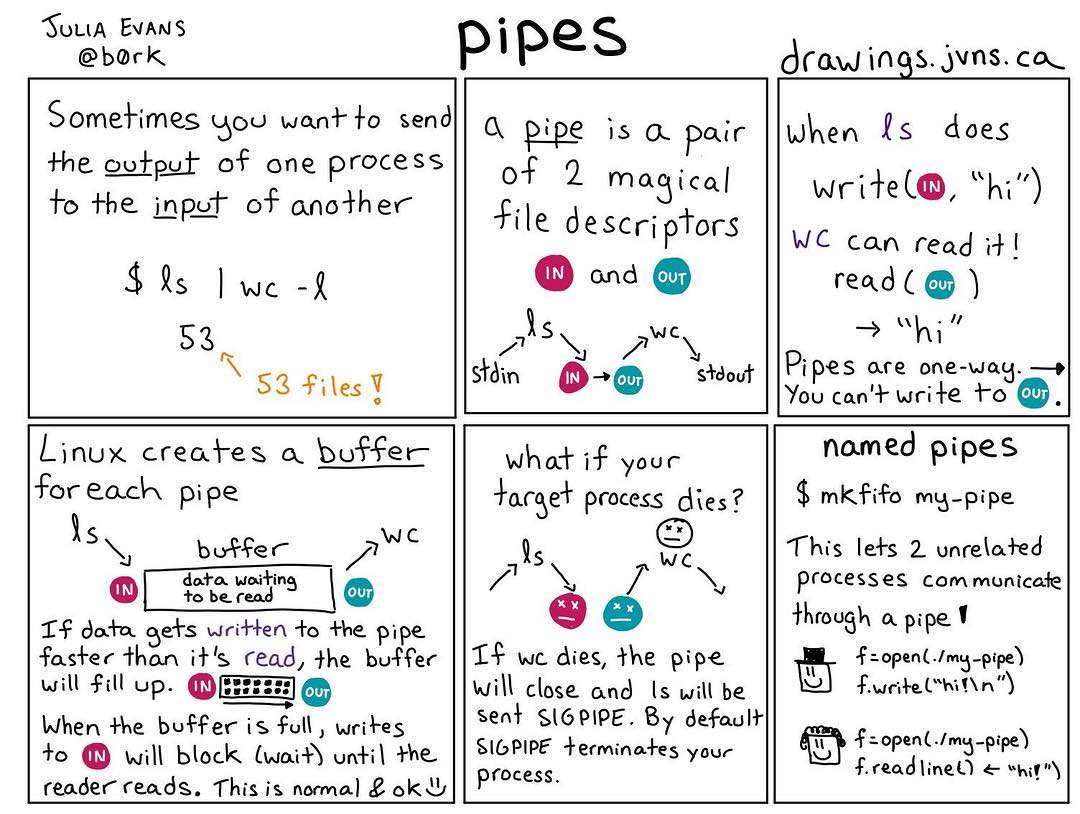 JULIA EVANS
@b0rk
pipes
drawings.jvns.ca
Sometimes you want to send
the output of one process
to the input of another
$ ls | wc -l
53
53 files!
a pipe is a pair
of 2 magical
file descriptors
IN and OUT
ls
wc
stdin
IN
OUT
stdout
when ls does
write(IN, "hi")
wc can read it!
read ( OUT )
→ "hi"
Pipes are one-way. →
You can't write to OUT.
Linux creates a buffer
for each pipe
ls
wc
buffer
IN
data waiting
to be read
OUT
If data gets written to the pipe
faster than it's read, the buffer
will fill up. IN OUT
When the buffer is full, writes
to IN will block (wait) until the
reader reads. This is normal & ok
what if your
target process dies?
ls
wc
If wc dies, the pipe
will close and ls will be
sent SIGPIPE. By default
SIGPIPE terminates your
process.
named pipes
$ mkfifo my-pipe
This lets 2 unrelated
processes communicate
through a pipe!
f=open(./my-pipe)
f.write("hi!\n")
f=open(./my-pipe)
f.readline() ← "hi!")